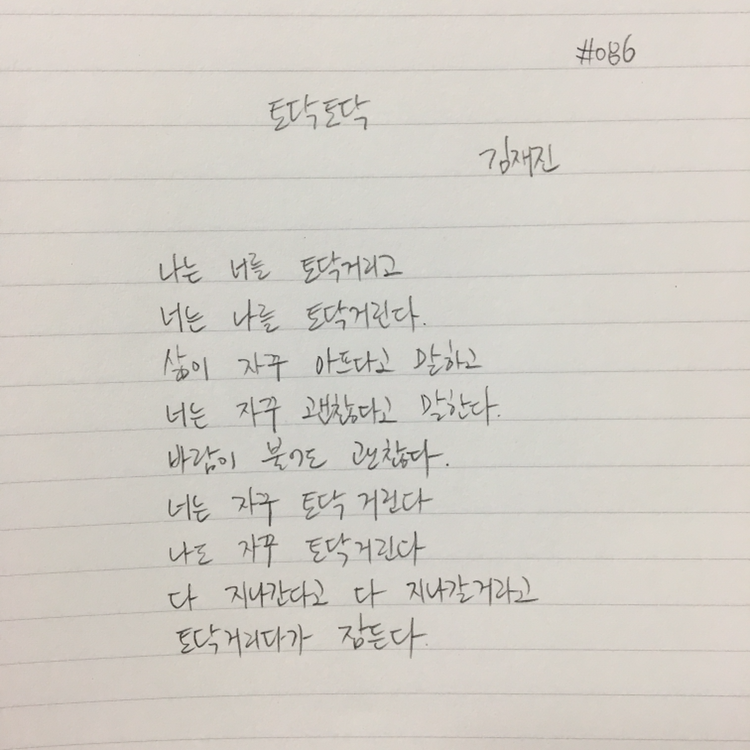 #086
토닥토닥
김재진
나는 너를 토닥거리고
너는 나를 토닥거린다.
삶이 자꾸 아프다고 말하고
너는 자꾸 괜찮다고 말한다.
바람이 불어도 괜찮다.
너는 자꾸 토닥거린다
나도 자꾸 토닥거린다
다 지나간다고 다 지나갈거라고
토닥거리다가 잠든다.